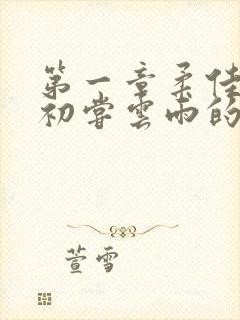 第一章柔佳
初尝雲雨的
萱雪